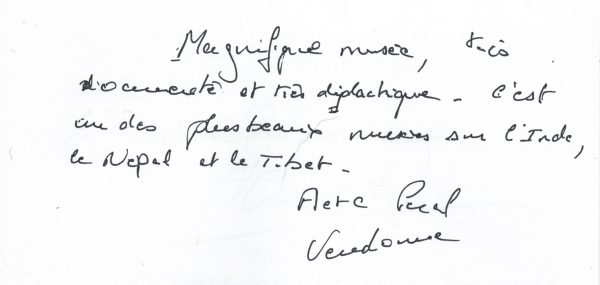 Magnifique musée, très
documenté et très didactique. C'est
un des plus beaux musées sur l'Inde,
le Népal et le Tibet.
Vendôme